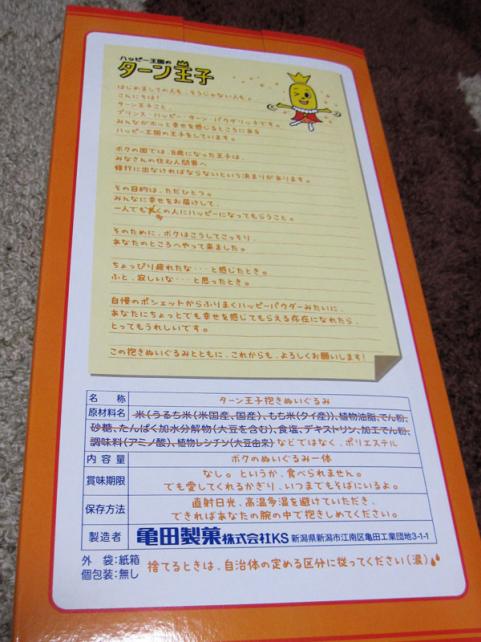 ハッピー王国の
ターン王子
はじめましての人も、そうじゃない人も。
こんにちは!
ターン王子こと、
プリンス・ハッピー・ターン・パウダリッチです。
みんながホッと幸せを感じるところにある
ハッピー王国の王子をしています。
ボクの国では、8歳になった王子は、
みなさんの住む人間界へ
修行に出なければならないという決まりがあります。
その目的は、ただひとつ。
みんなに幸せをお届けして、
一人でも多くの人にハッピーになってもらうこと。
そのために、ボクはこうしてこっそり、
あなたのところへやって来ました。
ちょっぴり疲れたな・・・と感じたとき。
ふと、寂しいな・・・と思ったとき。
自慢のポシェットからふりまくハッピーパウダーみたいに、
あなたにちょっとでも幸せを感じてもらえる存在になれたら、
とってもうれしいです。
この抱きぬいぐるみとともに、これからも、よろしくお願いします!
名 称 ターン王子抱きぬいぐるみ
原材料名 米(うるち米(米国産、国産)、もち米(タイ産))、植物油脂、でん粉、
砂糖、たんぱく加水分解物(大豆を含む)、食塩、デキストリン、加工でん粉、
調味料(アミノ酸)、植物レシチン(大豆由来) などではなく、ポリエステル
内 容 量 ボクのぬいぐるみ一体
賞味期限 なし。というか、食べられません。
でも愛してくれるかぎり、いつまでもそばにいるよ。
保存方法 直射日光、高温多湿を避けていただき、
できればあなたの腕の中で抱きしめてください。
製造者 亀田製菓株式会社KS 新潟県新潟市江南区亀田工業団地3-1-1
外 袋:紙箱
個包装:無し 捨てるときは、自治体の定める区分に従ってください(涙)